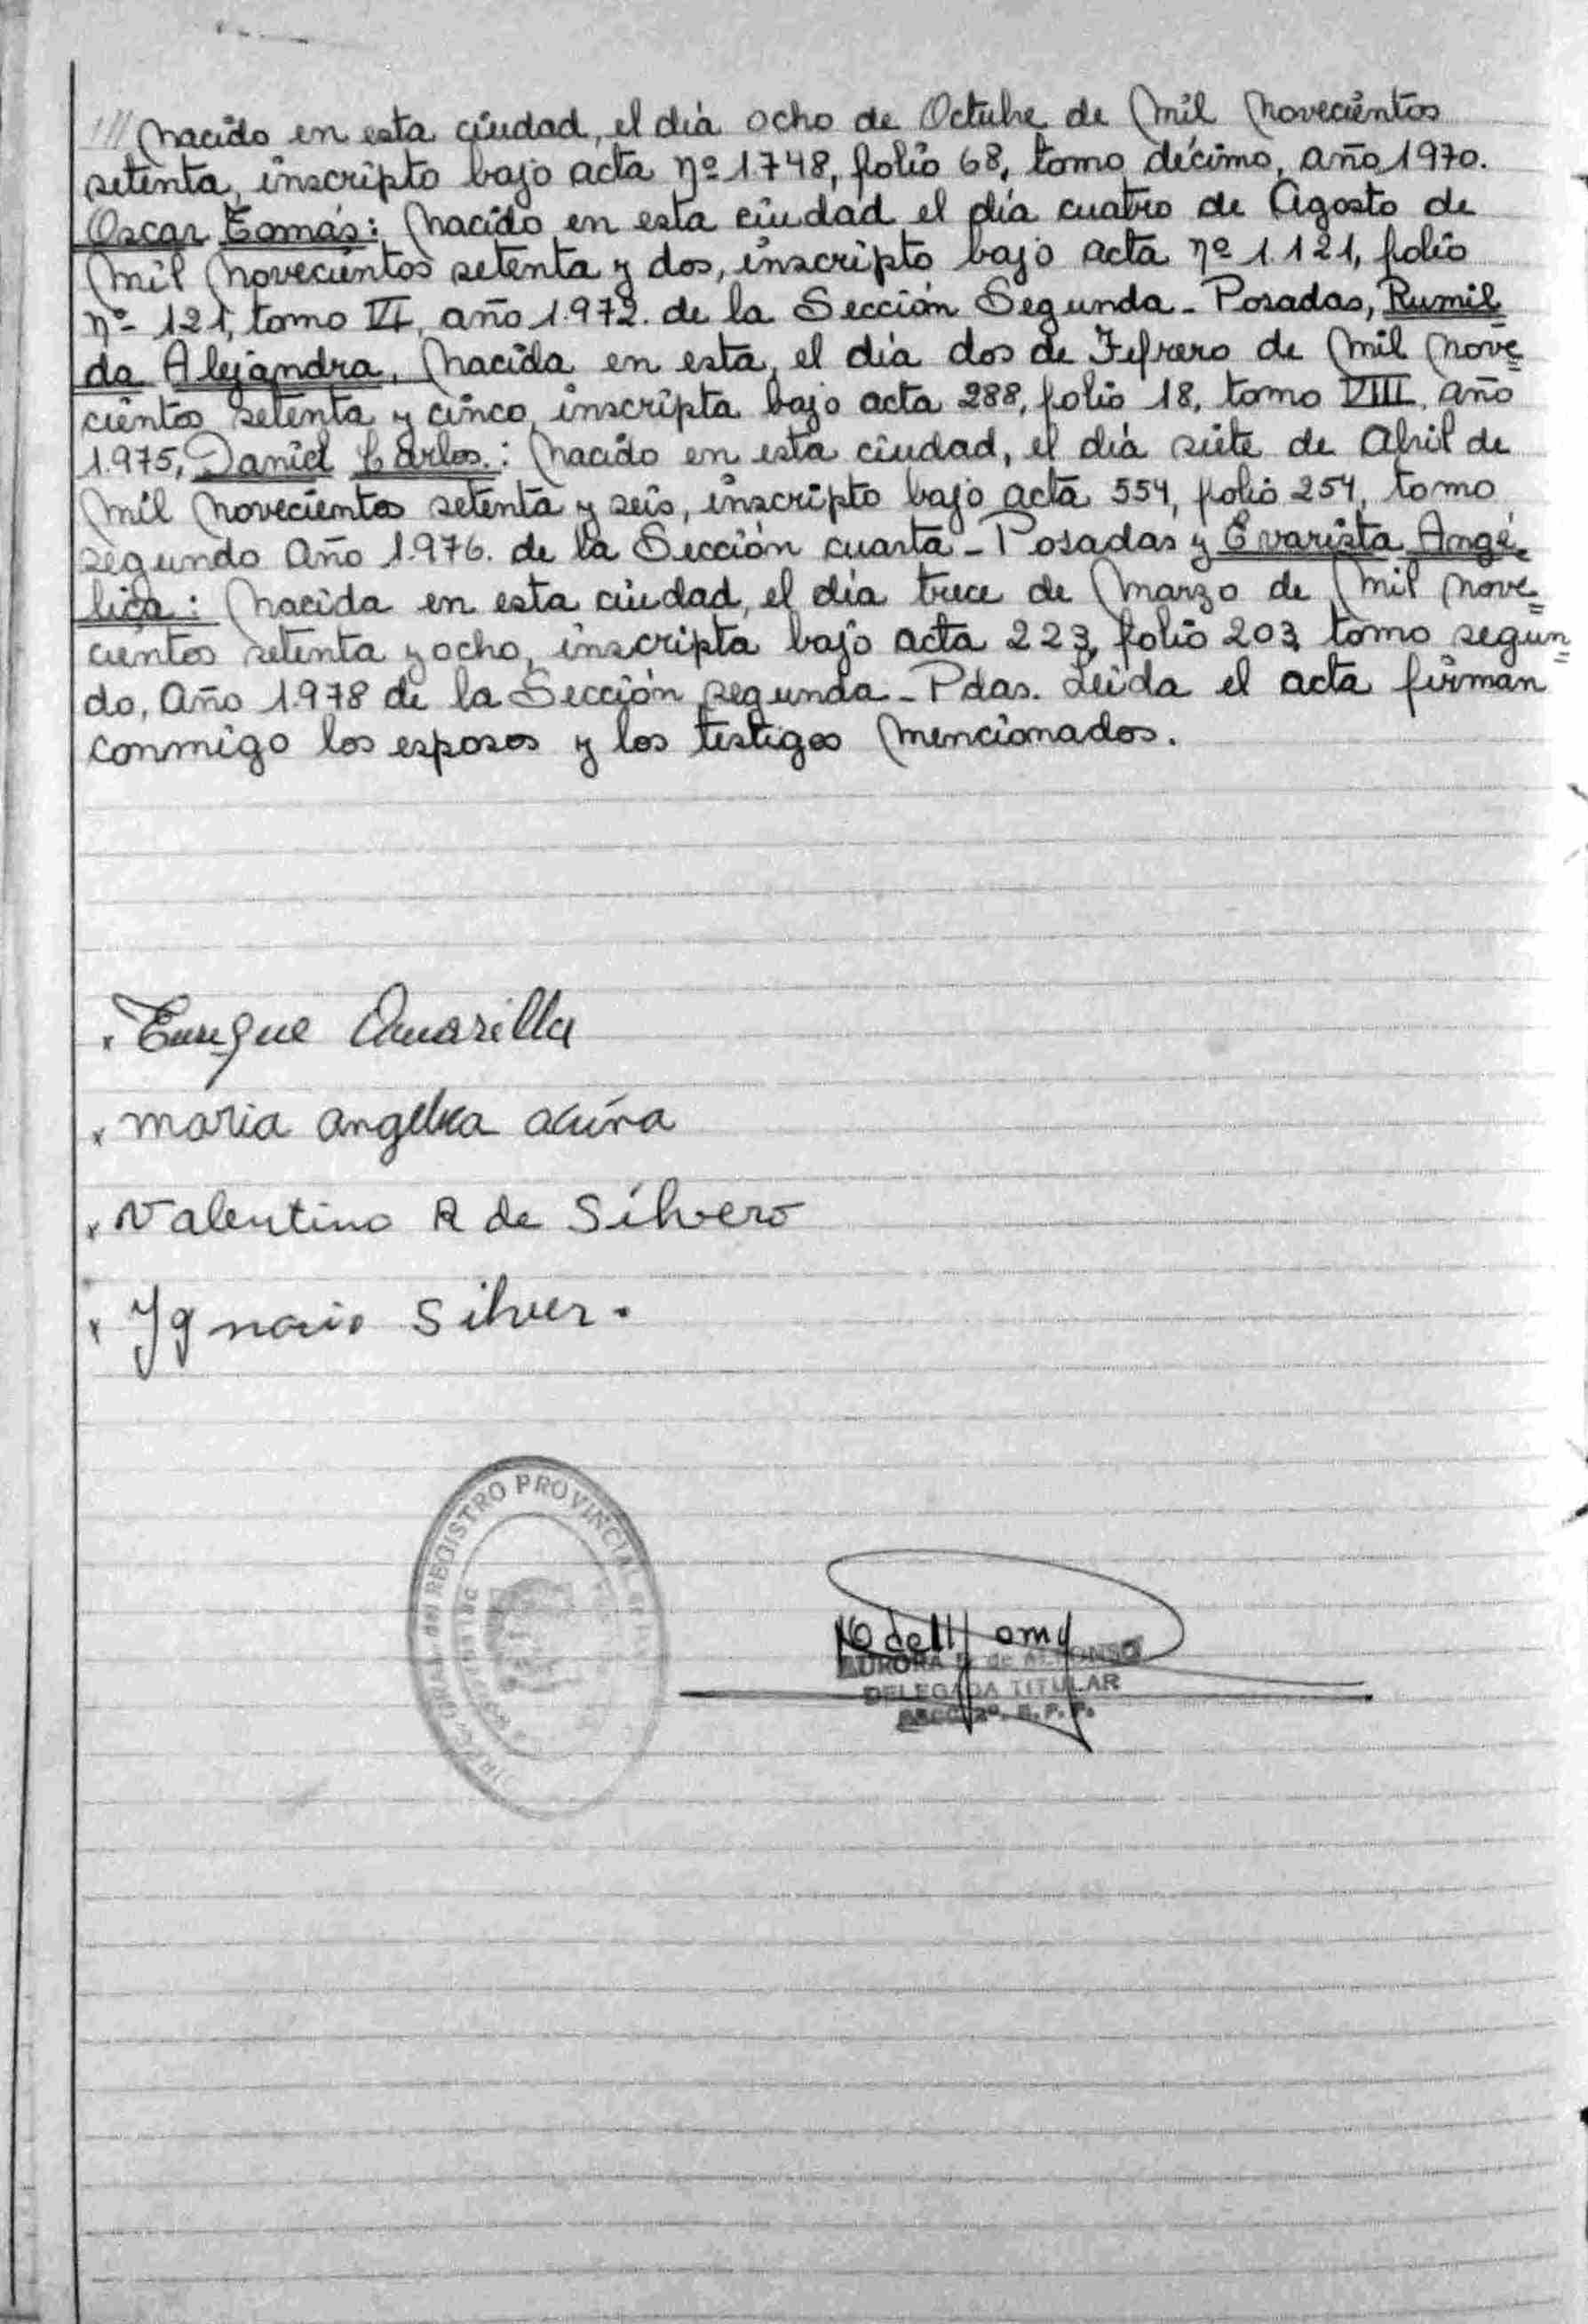 /// nacido en esta ciudad, el día ocho de Octubre de mil novecientos
setenta, inscripto bajo acta nº 1.748, folio 68, tomo décimo, año 1970.
Oscar Tomás: nacido en esta ciudad el día cuatro de Agosto de
mil novecientos setenta y dos, inscripto bajo acta nº 1.121, folio
nº 121, tomo VI, año 1.972. de la Sección Segunda - Posadas, Rumil
da Alejandra, nacida en esta, el día dos de Febrero de mil nove=
cientos setenta y cinco, inscripta bajo acta 288, folio 18, tomo VIII, año
1.975, Daniel Carlos: nacido en esta ciudad, el día siete de Abril de
mil novecientos setenta y seis, inscripto bajo acta 554, folio 254, tomo
segundo Año 1.976. de la Sección cuarta - Posadas y Evarista Angé=
lica: nacida en esta ciudad, el día trece de marzo de mil nove=
cientos setenta y ocho, inscripta bajo acta 223, folio 203, tomo segun=
do, Año 1.978 de la Sección segunda - Pdas. Leida el acta firman
conmigo los esposos y los testigos mencionados.
x Enrique Amarilla
x maria angelica acuña
x Valentina R de Silvero
x Ygnacio Silver.
GRAL. del REGISTRO PROVINCIAL
AURORA de ALFONSO
DELEGADA TITULAR
SECC. 2º. R. P. P.